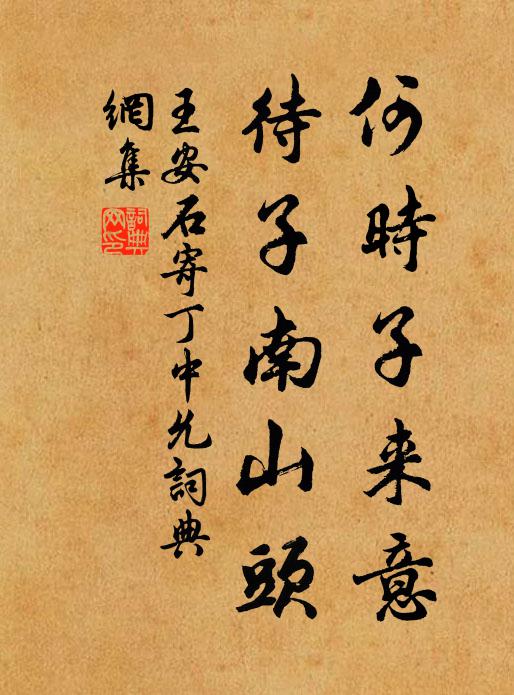 何時子来意
待子南山頭
王安石寄丁中允詞典
網集
詞典網印